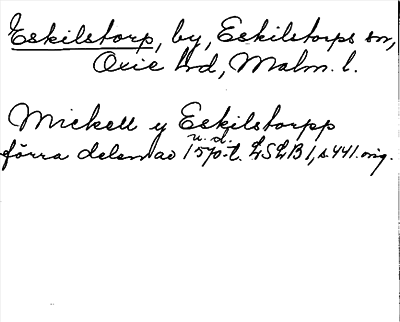 Eskilstorp, by, Eskilstorps sn,
Oxie hd, Malm. l.
Mickell y Eskilstorpp
u. d.
förra delen av 1570-t. LSLB 1, s. 441. orig.